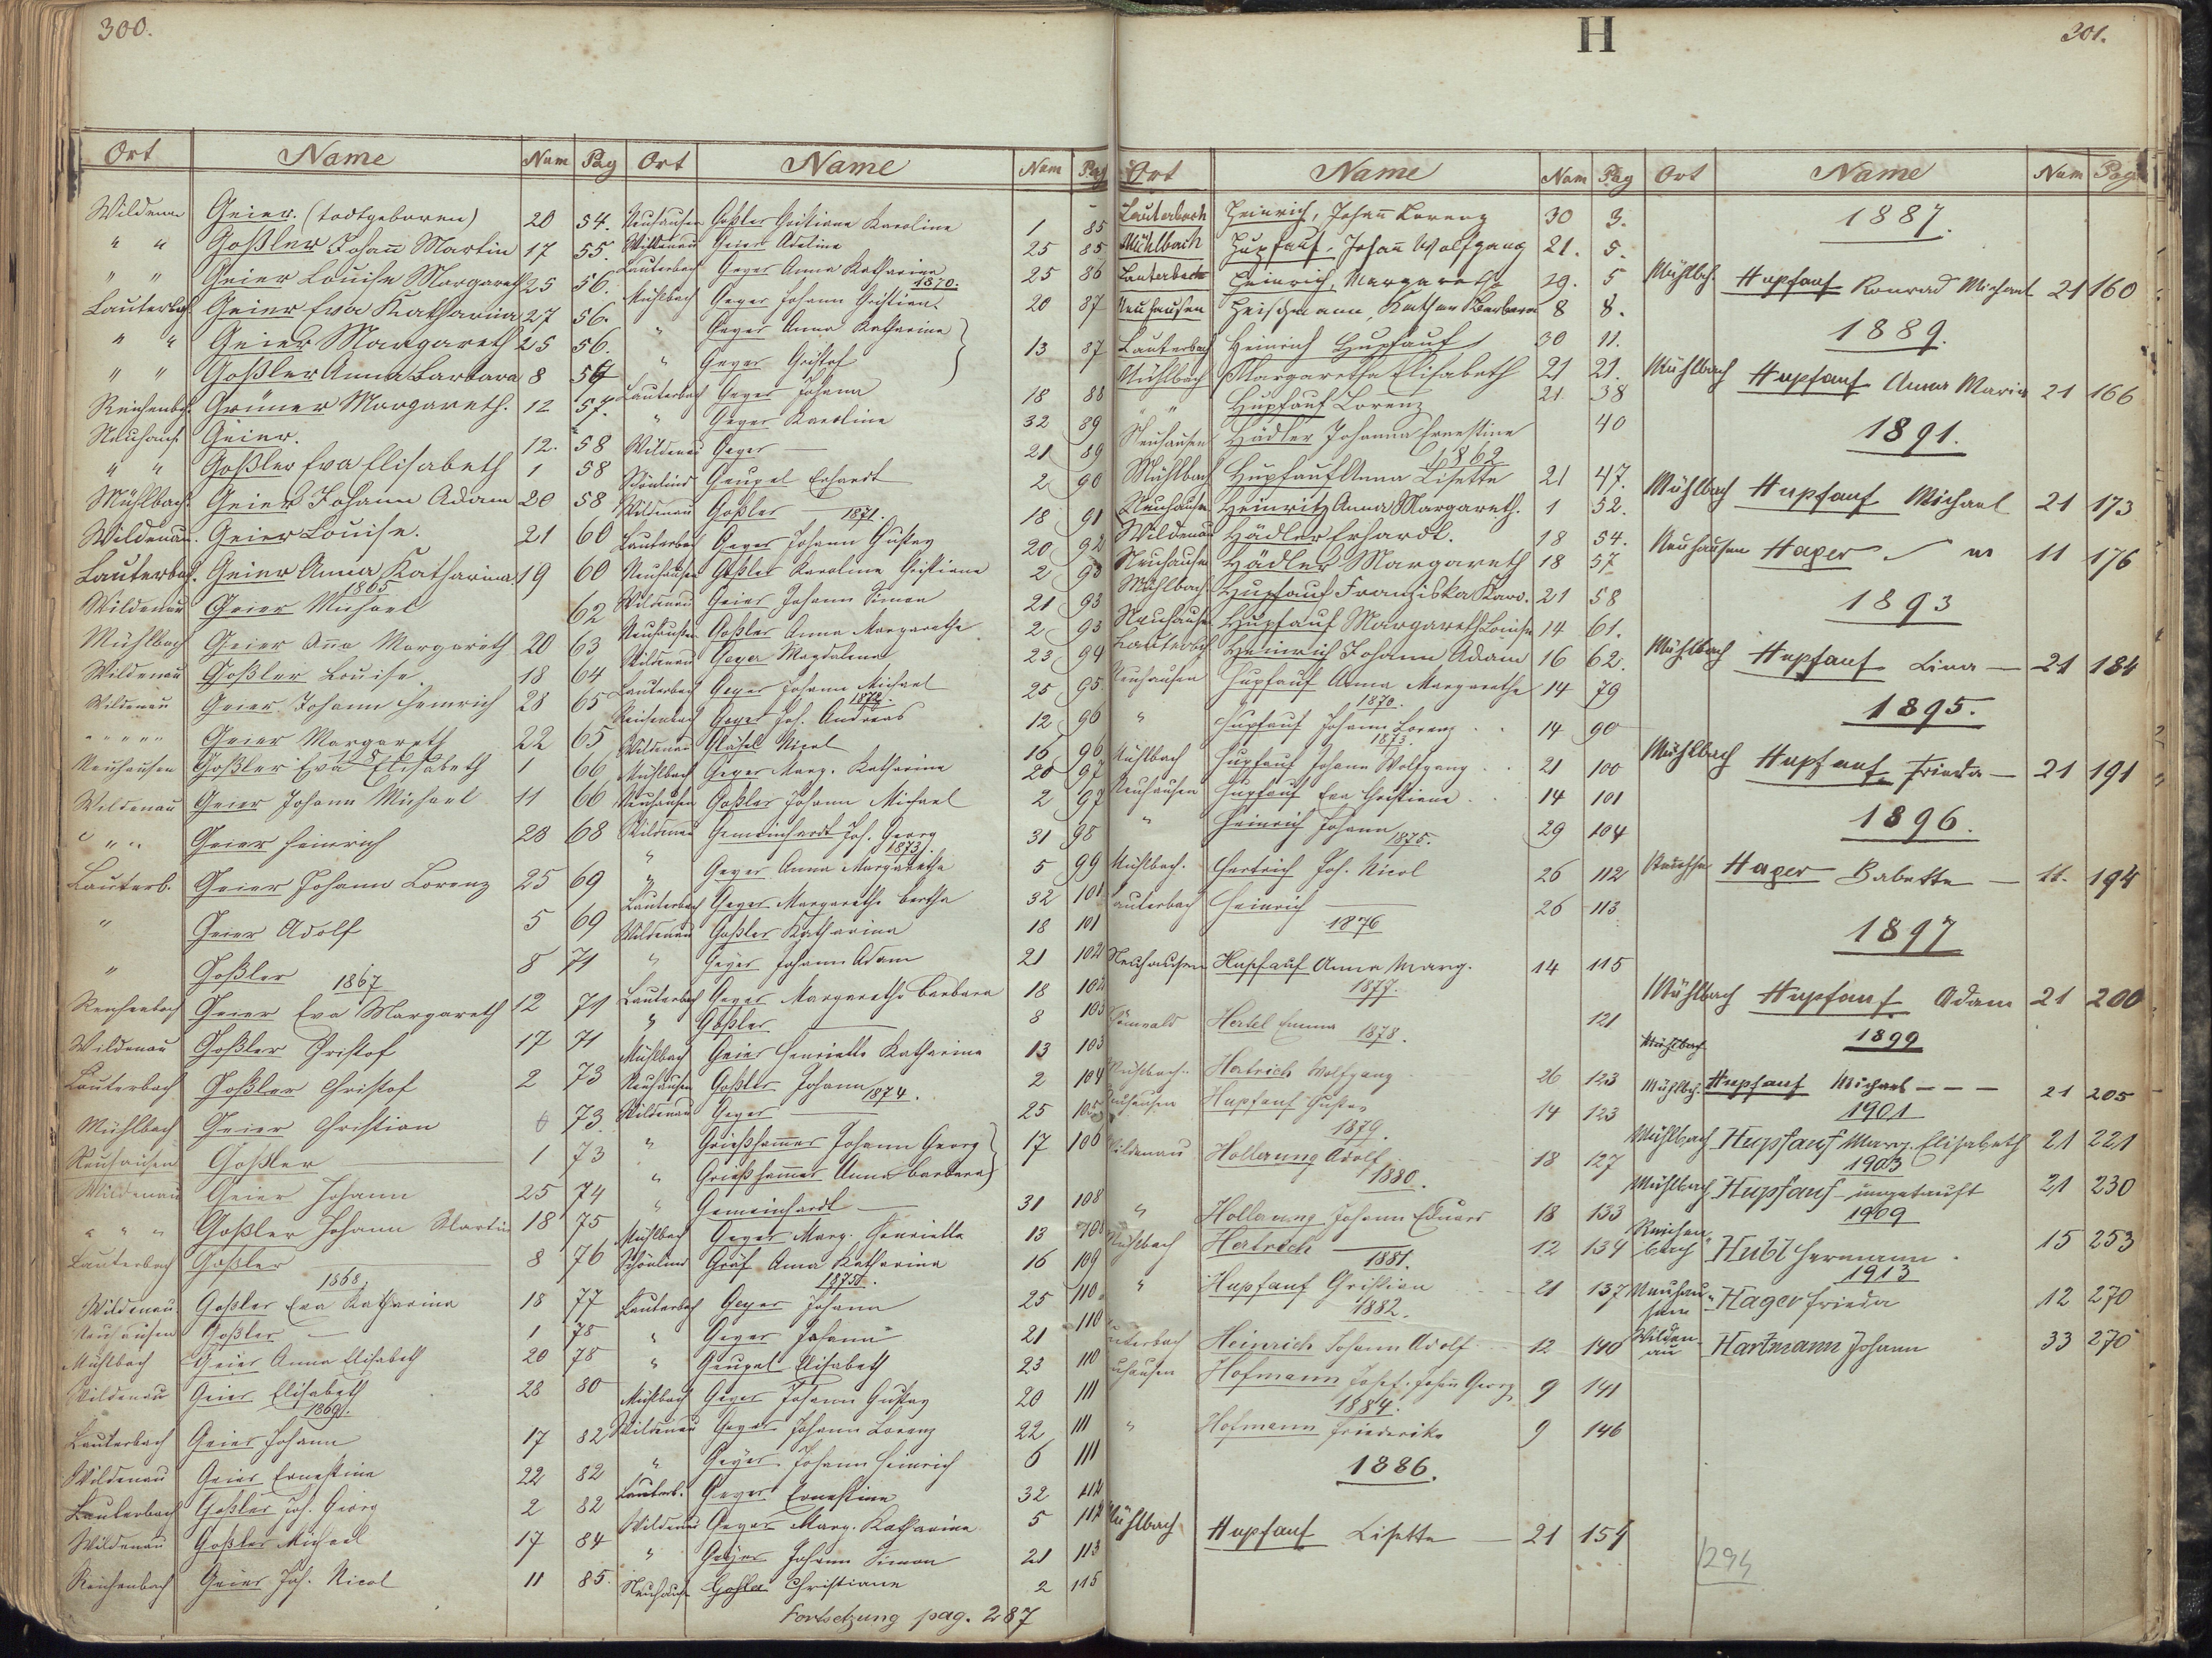 300.
Ort Name Num Pag
Wildenau Geier. (todtgeboren) 20 54.
" " Goßler Johañ Martin 17 55.
" " Geier Louise Margareth 25 56.
Lauterbch Geier Eva Katharina 27 56.
" " Geier Margareth 25 56.
" " Goßler Anna Barbara 8 56
Reichenbch. Grüner Margareth. 12 57.
Neuhaus. Geier. 12. 58
" " Goßler Eva Elisabeth 1 58
Mühlbach. Geier Johann Adam 20 58
Wildenau. Geier Louise. 21 60
Lauterbach. Geier Anna Katharina 19 60
1865
Wildenau Geier Michael 62
Mühlbach Geier Aña Margareth 20 63
Wildenau Goßler Louise. 18 64
Wildenau Geier Johann Heinrich 28 65
" " " " " Geier Margareth 22 65
Neuhausen Goßler Eva Elisabeth 1 66
Wildenau Geier Johann Michael 11 66
" " " Geier Heinrich 28 68
Lauterb. Geier Johann Lorenz 25 69
" Geier Adolf 5 69
" Goßler 8 71
1867
Reichenbach Geier Eva Margareth 12 71
Wildenau Goßler Christof 17 71
Lauterbach Goßler Christof 2 73
Mühlbach Geier Christian 6 73
Neuhausen Goßler 1 73
Wildenau Geier Johann 25 74
" " " Goßler Johann Martin 18 75
Lauterbach Goßler 8 76
1868.
Wildenau Goßler Eva Katharina 18 77
Neuhausen Goßler — 1 78
Mühlbach Geier Anna Elisabeth 20 78
Wildenau Geier Elisabeth 28 80
1869.
Lauterbach Geier Johann 17 82
Wildenau Geier Ernestine 22 82
Lauterbach Goßler Joh. Georg 2 82
Wildenau Goßler Michael 17 84
Reichenbach Geier Joh. Nicol 11 85.
Ort Name Num Pag
Neuhausen Goßler Christiane Karoline 1 85
Wildenau Geier Adeline 25 85
Lauterbach Geyer Anna Katharina 25 86
1870.
Mühlbach Geyer Johann Christian 20 87
" Geyer Anna Katharine
" Geyer Christof 13 87
Lauterbach Geyer Johann 18 88
" Geyer Karoline 32 89
Wildenau Geyer — 21 89
Schönlind Geupel Erhardt 2 90
Wildenau Goßler 18 91
1871.
Lauterbach Geyer Johann Gustav 20 92
Neuhausen Goßler Karoline Christiane 2 93
Wildenau Geier Johann Simon 21 93
Neuhausen Goßler Anna Margaretha 2 93
Wildenau Geyer Magdalena 23 94
Lauterbach Geyer Johann Michael 25 95
1872.
Reichenbach Geyer Joh. Andreas 12 96
Wildenau Gläsel Nicol 16 96
Mühlbach Geyer Marg. Katharina 20 97
Neuhausen Goßler Johann Michael 2 97
Wildenau Gemeinhardt Joh. Georg 31 98
1873.
" Geyer Anna Margaretha 5 99
Lauterbach Geyer Margaretha Bertha 32 101
Wildenau Goßler Katharina 18 101
" Geyer Johann Adam 21 102
Lauterbach Geyer Margaretha Barbara 18 102
" Goßler 8 103
Mühlbach Geier Henriette Katharina 13 103
Neuhausen Goßler Johann 2 104
1874.
Wildenau Geyer 25 105
" Grießham̄er Johann Georg 17 106
" Grießham̄er Anna Barbara
" Gemeinhardt — 31 108
Mühlbach Geyer Marg. Henriette 13 108
Schönlind Gräf Anna Katharina 16 109
1875.
Lauterbach Geyer Johann 25 110
" Geyer Johann 21 110
" Geupel Elisabeth 23 110
Mühlbach Geyer Johann Gustav 20 111
Wildenau Geyer Johann Lorenz 22 111
" Geyer Johann Heinrich 6 111
Lauterb. Geyer Ernestine 32 112
Wildenau Geyer Marg. Katharina 5 112
" Geyer Johann Simon 21 113
Neuhaus. Goßler Christiane 2 115
Fortsetzung pag. 287
H
301.
Ort Name Num Pag
Lauterbach Heinrich, Johañ Lorenz 30 3.
Mühlbach Hupfauf, Johañ Wolfgang 21. 5.
Lauterbach Heinrich, Margaretha 29. 5
Neuhausen Heischmann, Kathar Barbara 8 8.
Lauterbach Heinrich Hupfauf 30 11.
Mühlbach Margaretha Elisabeth 21 21.
" " Hupfauf Lorenz 21 38
Neuhausen Hädler Johanna Ernestine 40
1862
Mühlbach Hupfauf Anna Lisette 21 47.
Neuhausen Heinritz Anna Margareth. 1 52.
Wildenau Hädler Erhardt. 18 54.
Neuhausen Hädler Margareth 18 57
Mühlbach. Hupfauf Franziska Karo. 21 58
Neuhausen Hupfauf Margareth Louise 14 61.
Lauterbch Heinrich Johann Adam 16 62.
Neuhausen Hupfauf Anna Margaretha 14 79
1870.
" Hupfauf Johann Lorenz 14 90
1873.
Mühlbach Hupfauf Johann Wolfgang 21 100
Neuhausen Hupfauf Eva Christiane 14 101
" Heinrich Johann 29 104
1875.
Mühlbach. Hertrich Joh. Nicol 26 112
Lauterbach Heinrich 26 113
1876
Neuhausen Hupfauf Anna Marg. 14 115
1877.
Hertel Emma 121
1878.
Mühlbach. Hertrich Wolfgang 26 123
Neuhausen Hupfauf Gustav 14 123
1879.
Wildenau Hollerung Adolf 18 127
1880.
" Hollerung Johann Eduard 18 133
Mühlbach Hertrich 12 134
1881.
" Hupfauf Christian 21 137
1882.
Lauterbach Heinrich Johann Adolf 12 140
Neuhausen Hofmann Josef. Johañ Georg 9 141
1884.
" Hofmann Friederike 9 146
1886.
Mühlbach Hupfauf Lisette — 21 154
Ort Name Num Pag
1887.
Mühlbch. Hupfauf Konrad Michael 21 160
1889.
Mühlbach Hupfauf Anna Maria 21 166
1891.
Mühlbach Hupfauf Michael 21 173
Neuhausen Hager 11 176
1893
Mühlbach Hupfauf Lina — 21 184
1895.
Mühlbach Hupfauf Frieda — 21 191
1896.
Hager Babette — 11. 194
1897
Mühlbach Hupfauf Adam 21 200
Mühlbach 1899
Mühlbch. Hupfauf Michael - - - 21 205
1901
Mühlbach Hupfauf Marg. Elisabeth 21 221
1903
Mühlbach Hupfauf ungetauft 21 230
1909
Reichen-
bach Hübl Hermann. 15 253
1913
Neuhau-
sen Hager Frieda 12 270
Wilden-
au Hartmann Johann 33 270
1294